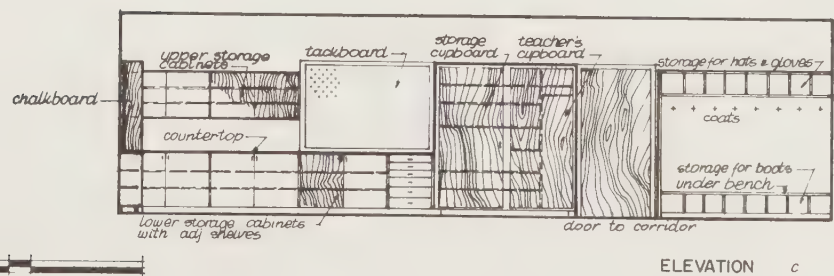 upper storage
cabinets
tackboard
storage
cupboard
teacher's
cupboard
storage for hats & gloves
chalkboard
coats
countertop
storage for boots
under bench
lower storage cabinets
with adj shelves
door to corridor
ELEVATION c